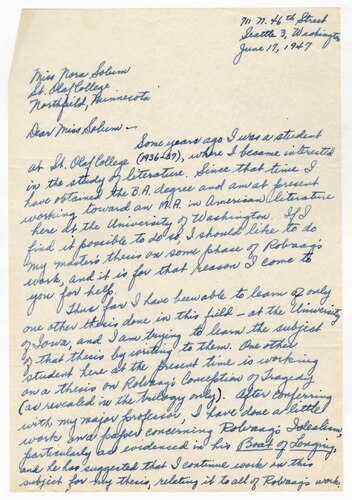 711 N. 46th Street
Seattle 3, Washington
June 17, 1947
Miss Nora Solum
St. Olaf College
Northfield, Minnesota
Dear Miss Solum —
Some years ago I was a student
at St. Olaf College (1936-37), where I became interested
in the study of literature. Since that time I
have obtained the B.A. degree and am at present
working toward an M.A. in American literature
here at the University of Washington. If I
find it possible to do so, I should like to do
my master's thesis on some phase of Rolvaag's
work, and it is for that reason I come to
you for help.
Thus far I have been able to learn of only
one other thesis done in this field — at the University
of Iowa, and I am trying to learn the subject
of that thesis by writing to them. One other
student here at the present time is working
on a thesis on Rolvaag's Conception of Tragedy
(as revealed in the trilogy only). After conferring
with my major professor, I have done a little
work on a paper concerning Rolvaag's Idealism,
particularly as evidenced in his Boat of Longing,
and he has suggested that I continue work on this
subject for my thesis, relating it to all of Rolvaag's work.